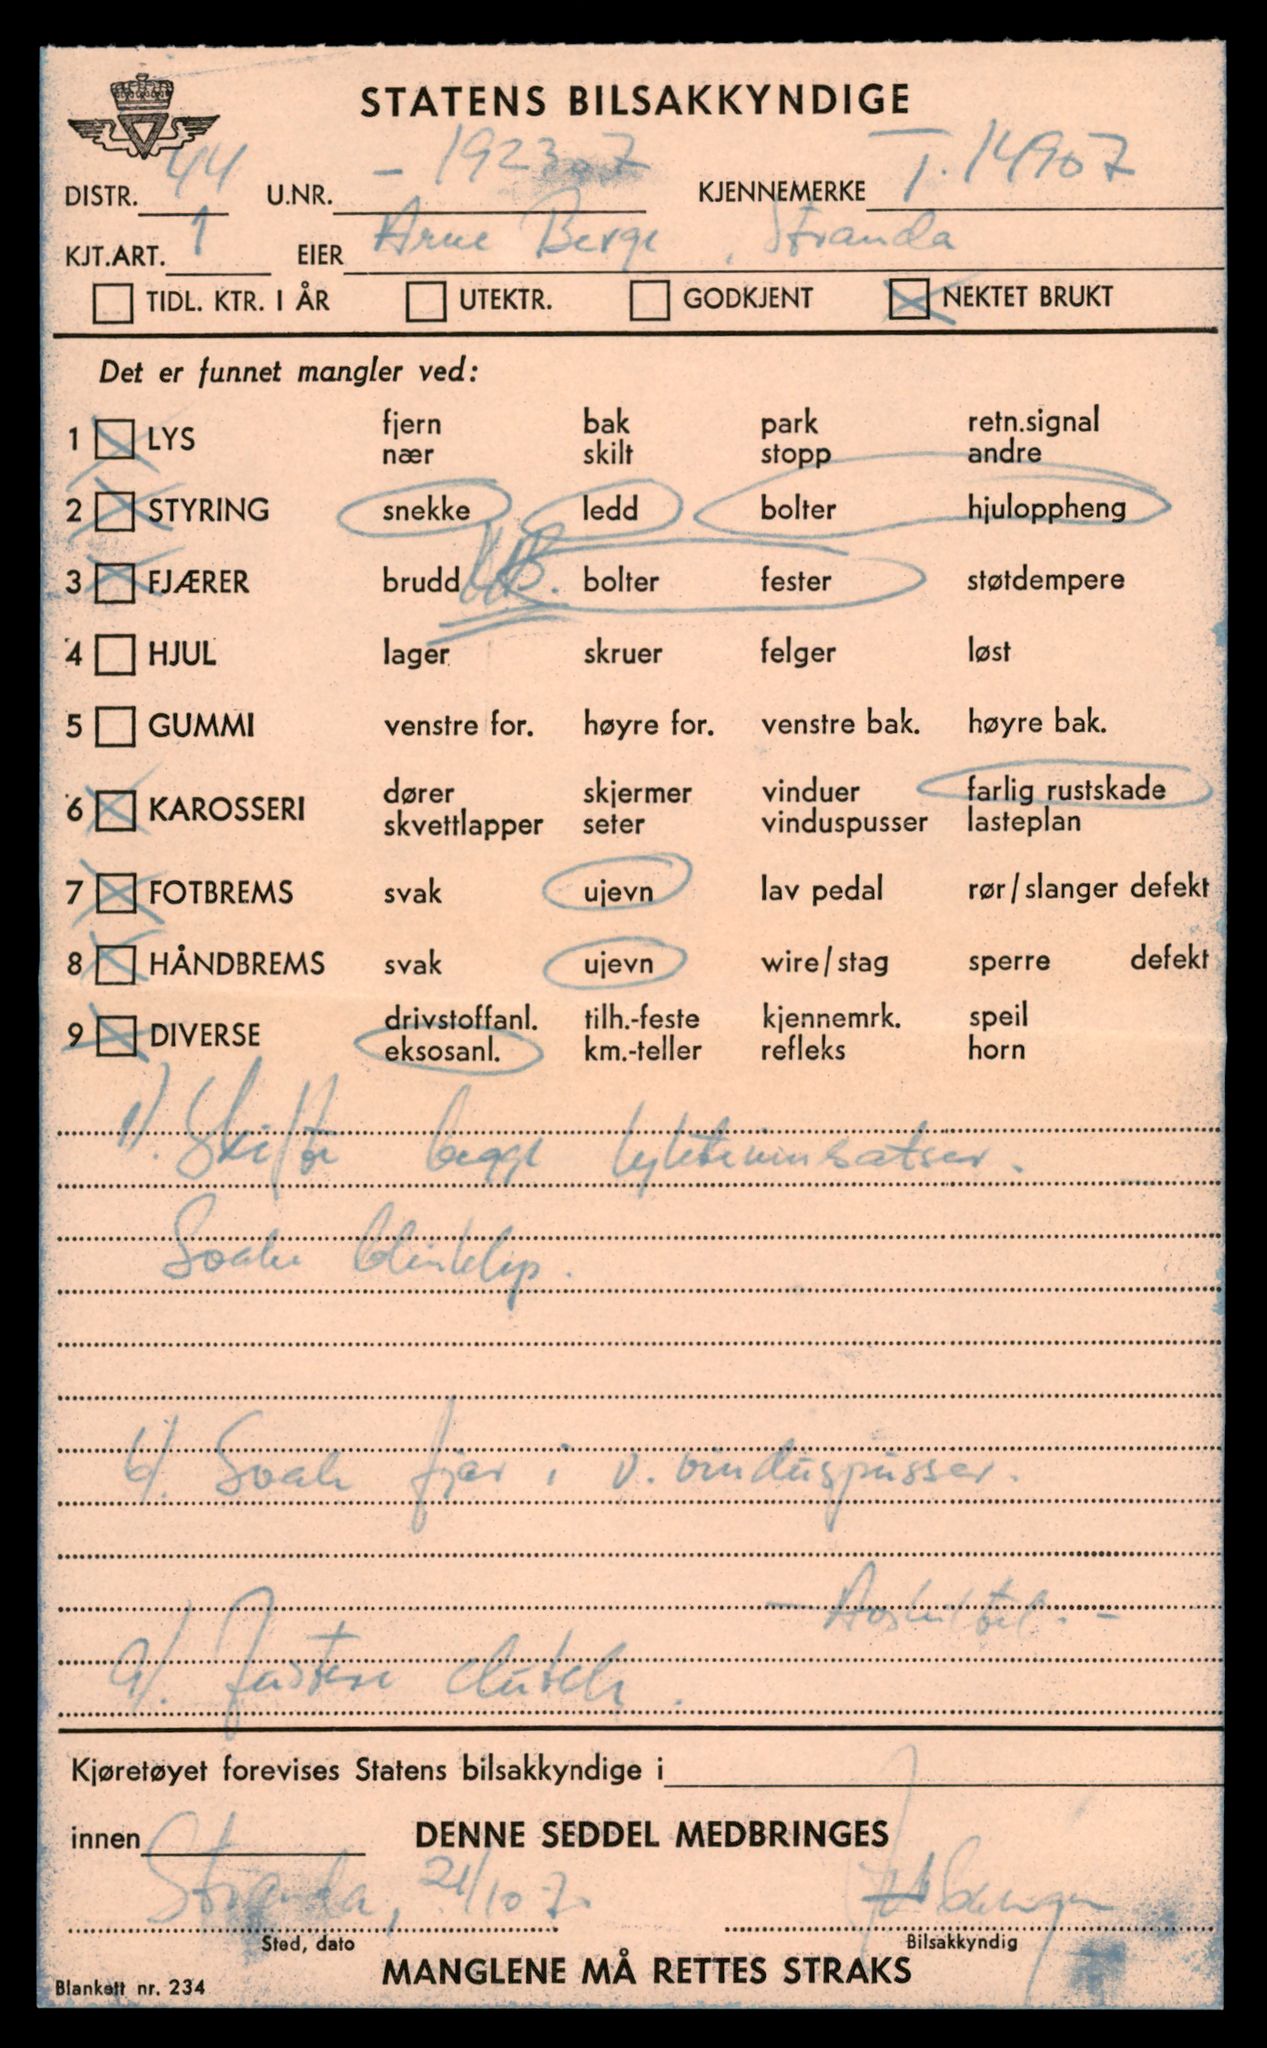 STATENS BILSAKKYNDIGE
DISTR. 44 U.NR. - 192307 KJENNEMERKE T. 14907
KJT.ART. 1 EIER Arne Berge, Stranda
TIDL. KTR. I ÅR UTEKTR. GODKJENT NEKTET BRUKT
Det er funnet mangler ved:
1 LYS fjern bak park retn.signal
nær skilt stopp andre
2 STYRING snekke ledd bolter hjuloppheng
3 FJÆRER brudd bolter fester støtdempere
4 HJUL lager skruer felger løst
5 GUMMI venstre for. høyre for. venstre bak. høyre bak.
6 KAROSSERI dører skjermer vinduer farlig rustskade
skvettlapper seter vinduspusser lasteplan
7 FOTBREMS svak ujevn lav pedal rør/slanger defekt
8 HÅNDBREMS svak ujevn wire/stag sperre defekt
9 DIVERSE drivstoffanl. tilh.-feste kjennemrk. speil
eksosanl. km.-teller refleks horn
1). Skifte begge lykteinnsatser.
Svake blinklys.
6). Svak fjær i v. vinduspusser.
- Avskiltet. -
9). Justere clutch.
Kjøretøyet forevises Statens bilsakkyndige i
innen DENNE SEDDEL MEDBRINGES
Stranda, 21/10 7
Sted, dato Bilsakkyndig
MANGLENE MÅ RETTES STRAKS
Blankett nr. 234